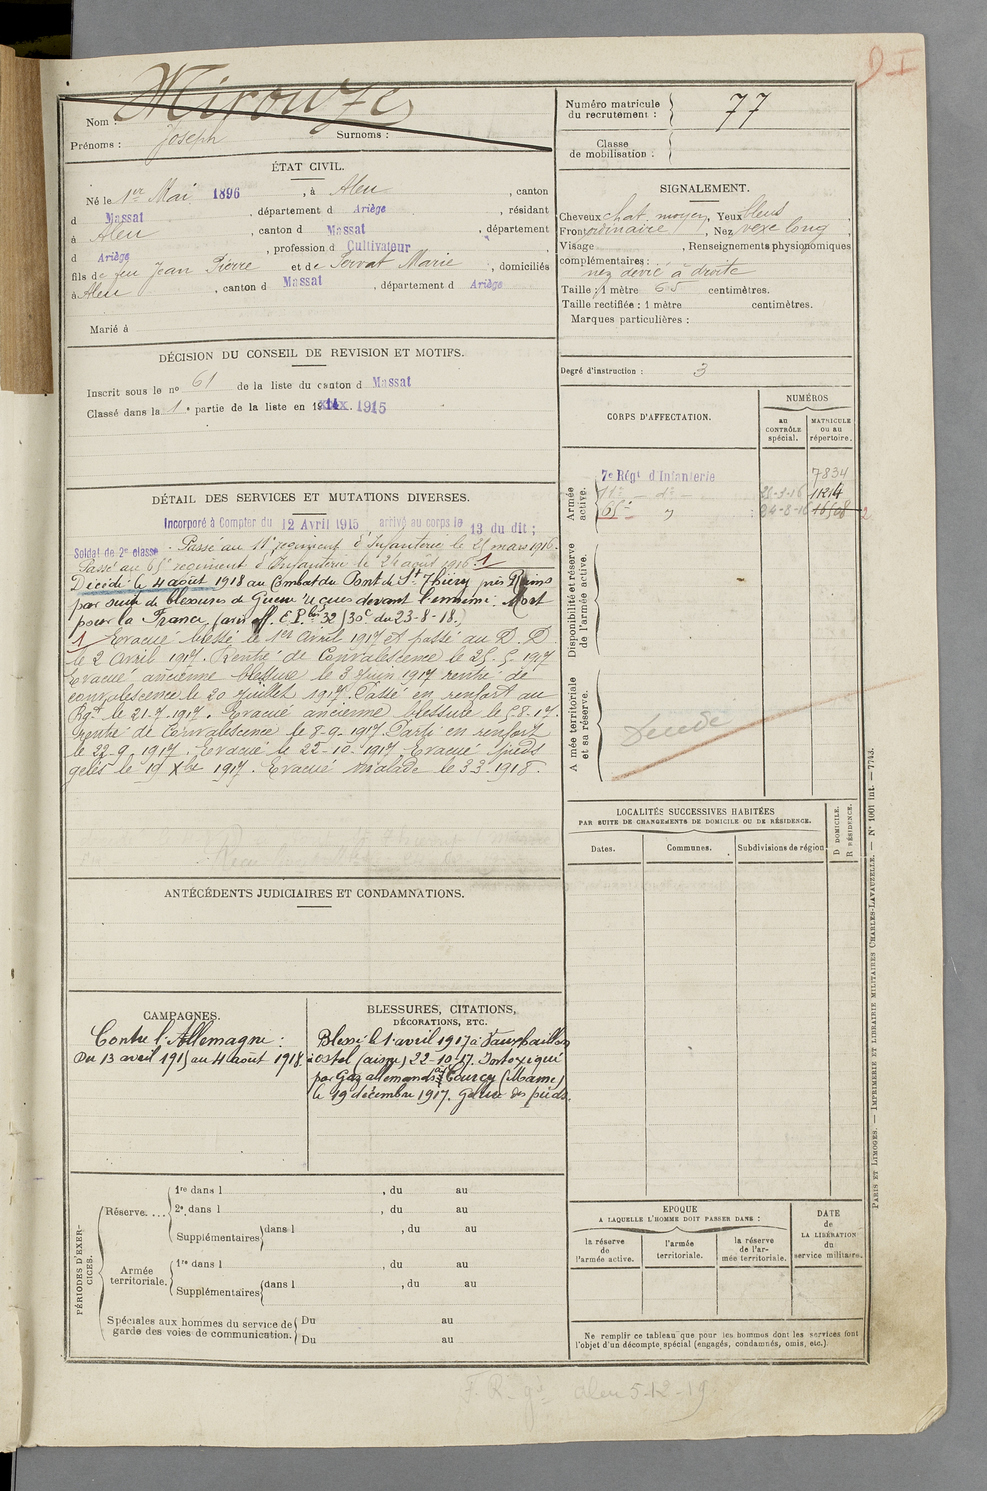 D I
Nom : Mirouze
Prénoms : Joseph Surnoms :
Numéro matricule du recrutement : 77
Classe de mobilisation :
ÉTAT CIVIL.
Né le 1er Mai 1896, à Aleu, canton
d Massat, département d Ariège, résidant
à Aleu, canton d Massat, département
d Ariège, profession d Cultivateur,
fils de feu Jean Pierre et de Servat Marie, domiciliés
à Aleu, canton d Massat, département d Ariège
Marié à
SIGNALEMENT.
Cheveux chat. moyen, Yeux bleus,
Front ordinaire, Nez vexe long,
Visage , Renseignements physionomiques
complémentaires :
nez dévié à droite
Taille : 1 mètre 65 centimètres.
Taille rectifiée : 1 mètre centimètres.
Marques particulières :
Degré d'instruction : 3
DÉCISION DU CONSEIL DE REVISION ET MOTIFS.
Inscrit sous le no 61 de la liste du canton d Massat
Classé dans la 1e partie de la liste en 1915
DÉTAIL DES SERVICES ET MUTATIONS DIVERSES.
Incorporé à Compter du 12 Avril 1915, arrivé au corps le 13 du dit ;
Soldat de 2e classe. Passé au 11e regiment d'Infanterie le 25 mars 1916.
Passé au 65e regiment d'Infanterie le 24 août 1916. 1
Décédé le 4 août 1918 au Combat du Pont de St Thiery près Reims
par suite de blessures de Guerre reçues devant l'ennemi. Mort
pour la France (avis off. E.P. bis 32 (30e du 23-8-18.)
1 Evacué blessé le 1er Avril 1917 et passé au D.D.
le 2 Avril 1917. Rentré de Convalescence le 25-5-1917
Evacué ancienne blessure le 3 Juin 1917 rentré de
convalescence le 20 Juillet 1917. Passé en renfort au
Rgt le 21-7-1917. Evacué ancienne blessure le 5-8-17.
Rentré de Convalescence le 8-9-1917 Parti en renfort
le 22-9-1917. Evacué le 22-10-1917 Evacué pieds
gelés le 19 Xbre 1917. Evacué malade le 3 3-1918.
CORPS D'AFFECTATION.
NUMÉROS
AU CONTRÔLE spécial.
MATRICULE OU AU répertoire.
Armée active.
7e Régt d'Infanterie 7834
11e — do — 25-3-16 11214
65e " 24-8-16 16508 2
Disponibilité et réserve de l'armée active.
Armée territoriale et sa réserve.
Décédé
LOCALITÉS SUCCESSIVES HABITÉES
PAR SUITE DE CHANGEMENTS DE DOMICILE OU DE RÉSIDENCE.
Dates. Communes. Subdivisions de région
D DOMICILE.
R RÉSIDENCE.
ANTÉCÉDENTS JUDICIAIRES ET CONDAMNATIONS.
CAMPAGNES.
Contre l'Allemagne :
Du 13 avril 1915 au 4 août 1918.
BLESSURES, CITATIONS,
DÉCORATIONS, ETC.
Blessé le 1 avril 1917 à Vauxhaillon
à ostel (aisne) 22-10-17. Intoxiqué
par Gaz allemands à Courcy (Marne)
le 19 décembre 1917. Gelure des pieds.
PÉRIODES D'EXERCICES.
Réserve....
1re dans l , du au
2e dans l , du au
Supplémentaires dans l , du au
Armée territoriale.
1re dans l , du au
Supplémentaires dans l , du au
Spéciales aux hommes du service de garde des voies de communication.
Du au
Du au
EPOQUE
A LAQUELLE L'HOMME DOIT PASSER DANS :
la réserve de l'armée active.
l'armée territoriale.
la réserve de l'armée territoriale.
DATE de LA LIBÉRATION du service militaire.
Ne remplir ce tableau que pour les hommes dont les services font
l'objet d'un décompte spécial (engagés, condamnés, omis, etc.).
PARIS ET LIMOGES. — IMPRIMERIE ET LIBRAIRIE MILITAIRES CHARLES-LAVAUZELLE. — N° 1001 int. — 7743.
F. R. gd Aleu 5-12-19